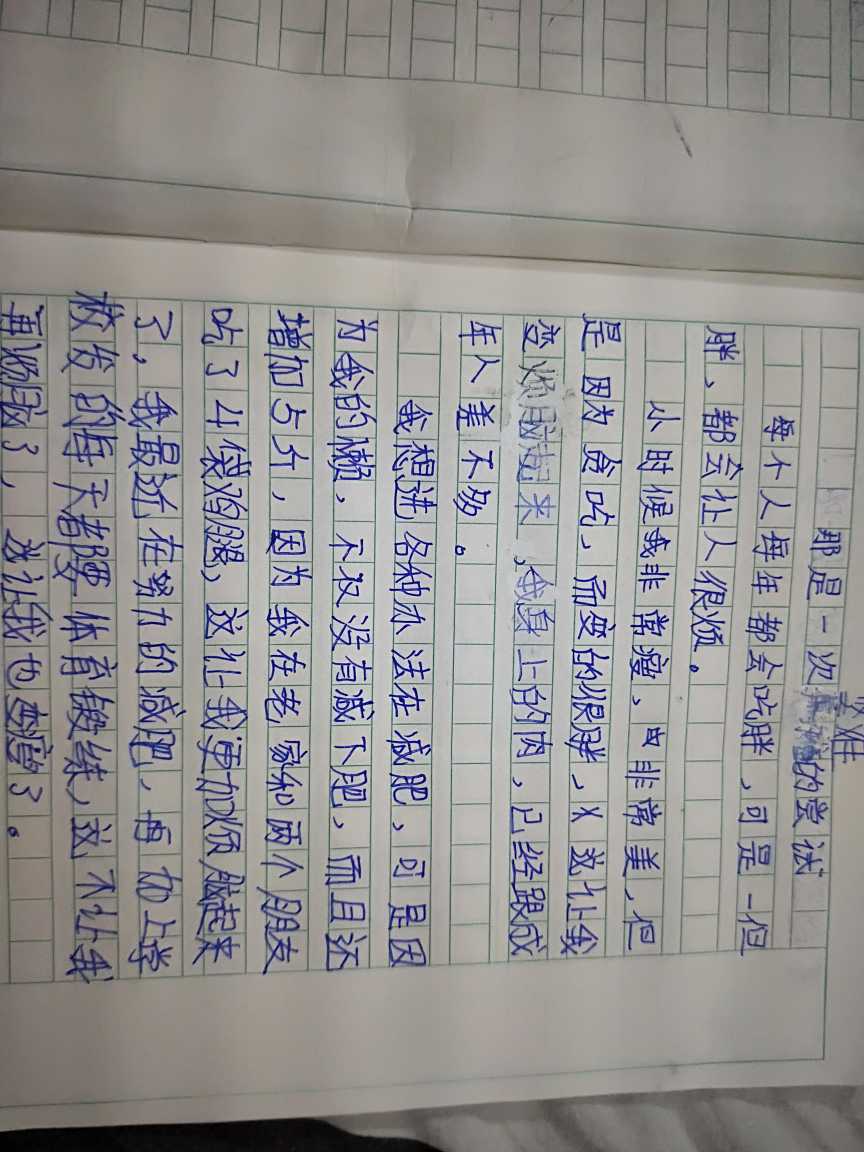 那是一次艰难的尝试
每个人每年都会吃胖，可是一但
胖、都会让人很烦。
小时候我非常瘦、也非常美，但
是因为贪吃，而变的很胖，这让我
变烦恼起来，我身上的肉，已经跟成
年人差不多。
我想进各种办法在减肥，可是因
为我的懒，不仅没有减下肥，而且还
增加5斤，因为我在老家和两个朋友
吃了4袋鸡腿，这让我更加烦恼起来
了，我最近在努力的减肥，再加上学
校发的每天都要体育锻练，这不让我
再烦恼了，这让我也变瘦了。